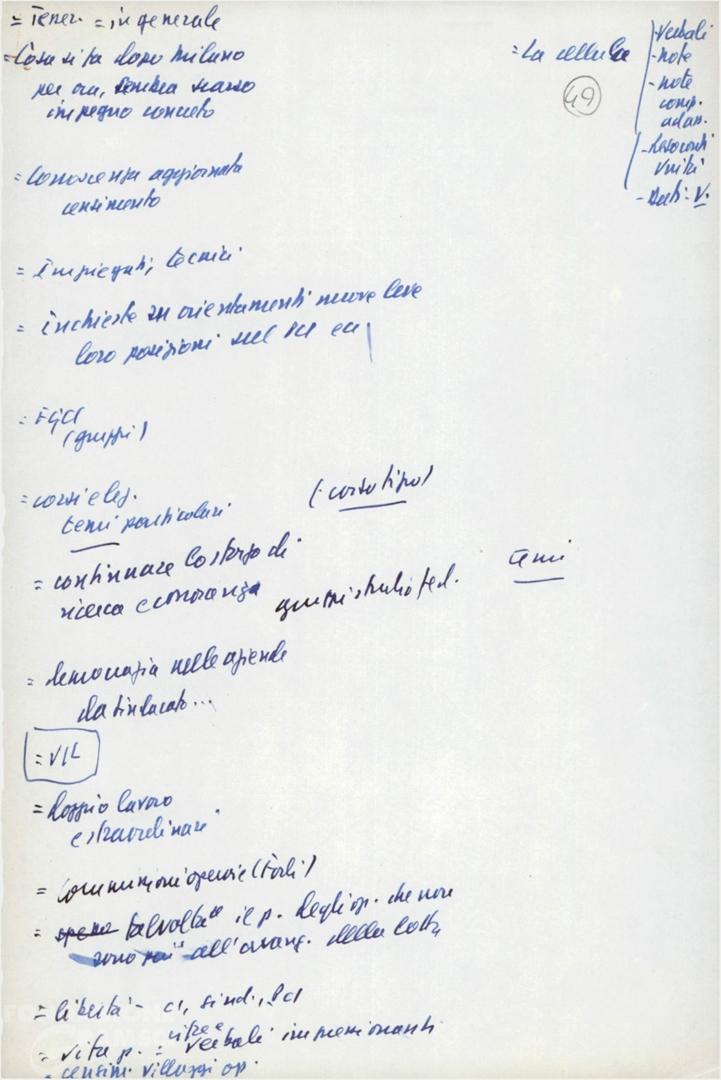 = Tener. = in generale
- Cosa si fa dopo Milano
per ora, sembra scarso
impegno concreto
= La cellula
49
- Verbali
- note
- note
comp.
adam.
- Resoconti
Unità
- Dati: V.
= Conoscenza aggiornata
censimento
= Impiegati, tecnici
= inchieste su orientamenti nuove leve
loro posizioni sul PCI ecc
= FGCI
(gruppi)
= corsi eleg.
temi particolari
(corso tipo)
= continuare lo sforzo di
ricerca e conoscenza
gruppi studio fed.
temi
= democrazia nelle aziende
da sindacato...
= VIL
= doppio lavoro
e straordinari
= Commissioni operaie (Forlì)
= spesso talvolta il p. degli op. che non
sono all'avang. della lotta
= libertà - ci, sind., PCI
= vita p. = verbali impressionanti
= censim. villaggi op.